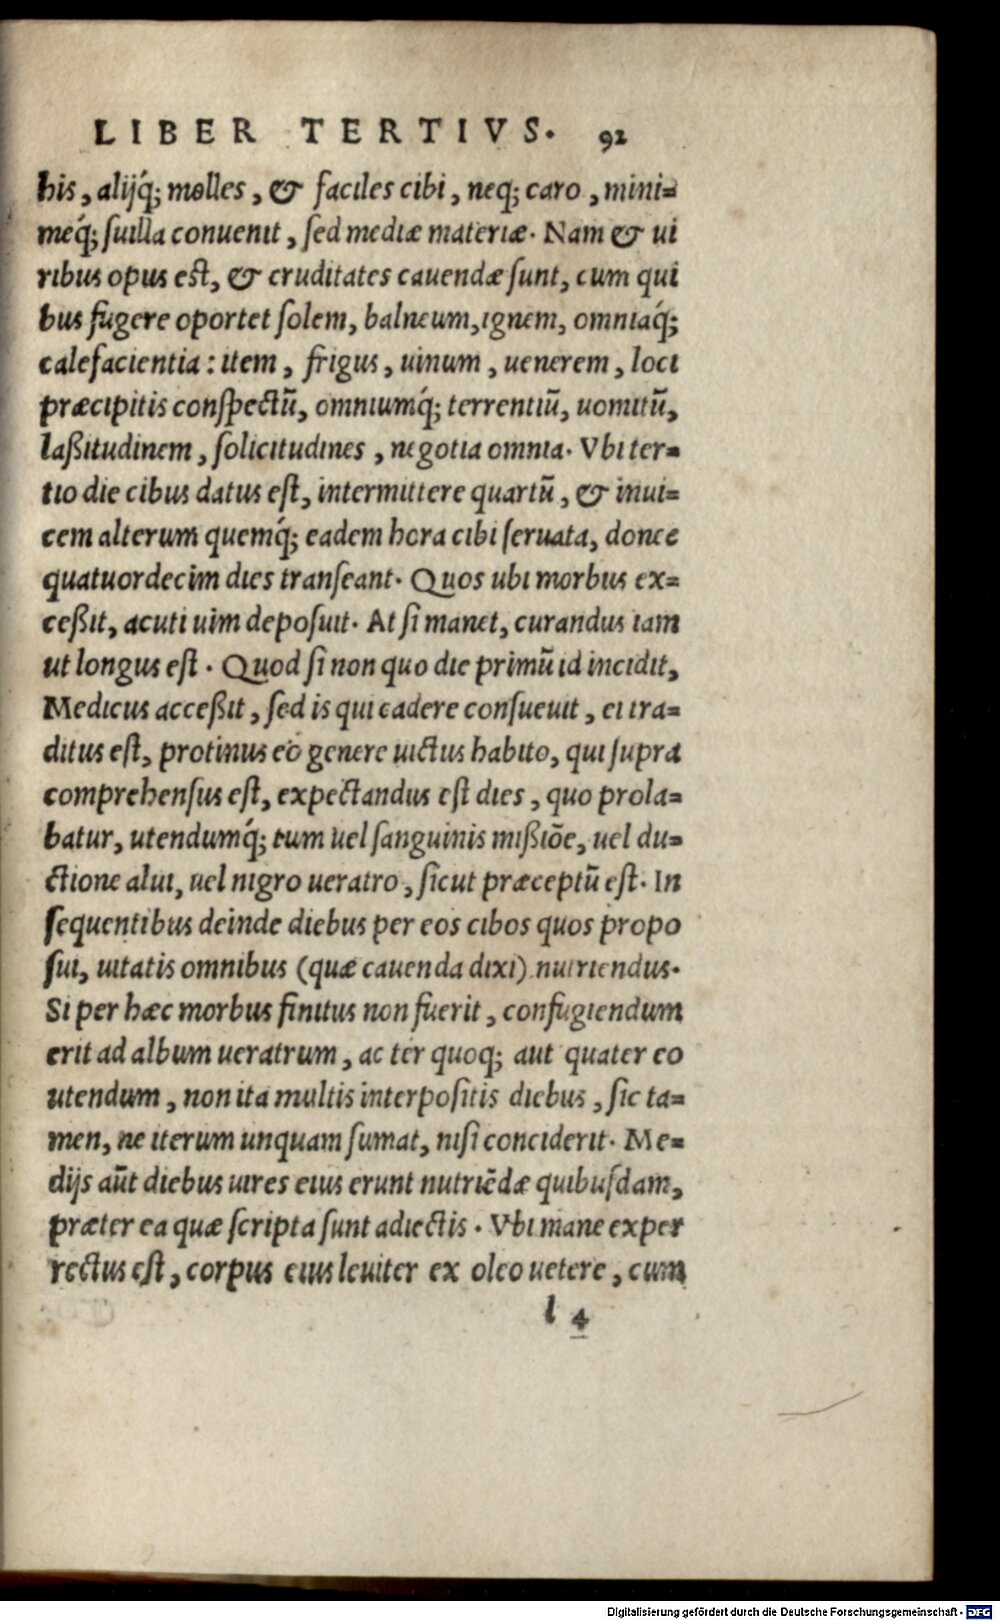 LIBER TERTIVS. 92
his, alijq́; molles, & faciles cibi, neq; caro, mini=
meq́; suilla conuenit, sed mediæ materiæ. Nam & ui
ribus opus est, & cruditates cauendæ sunt, cum qui
bus fugere oportet solem, balneum, ignem, omniaq́;
calefacientia: item, frigus, uinum, uenerem, loci
præcipitis conspectũ, omniumq́; terrentiũ, uomitũ,
laßitudinem, solicitudines, negotia omnia. Vbi ter=
tio die cibus datus est, intermittere quartũ, & inui=
cem alterum quemq́; eadem hora cibi seruata, donec
quatuordecim dies transeant. Quos ubi morbus ex=
ceßit, acuti uim deposuit. At si manet, curandus iam
ut longus est. Quod si non quo die primũ id incidit,
Medicus acceßit, sed is qui cadere consueuit, ei tra=
ditus est, protinus eo genere uictus habito, qui supra
comprehensus est, expectandus est dies, quo prola=
batur, utendumq́; tum uel sanguinis mißiõe, uel du=
ctione alui, uel nigro ueratro, sicut præceptũ est. In
sequentibus deinde diebus per eos cibos quos propo
sui, uitatis omnibus (quæ cauenda dixi) nutriendus.
Si per hæc morbus finitus non fuerit, confugiendum
erit ad album ueratrum, ac ter quoq; aut quater eo
utendum, non ita multis interpositis diebus, sic ta=
men, ne iterum unquam sumat, nisi conciderit. Me=
dijs aũt diebus uires eius erunt nutriẽdæ quibusdam,
præter ea quæ scripta sunt adiectis. Vbi mane exper
rectus est, corpus eius leuiter ex oleo uetere, cum
l 4
Digitalisierung gefördert durch die Deutsche Forschungsgemeinschaft - DFG